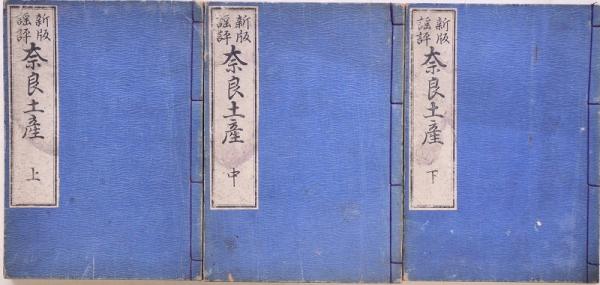 新版
謡評
奈良土産
上
新版
謡評
奈良土産
中
新版
謡評
奈良土産
下